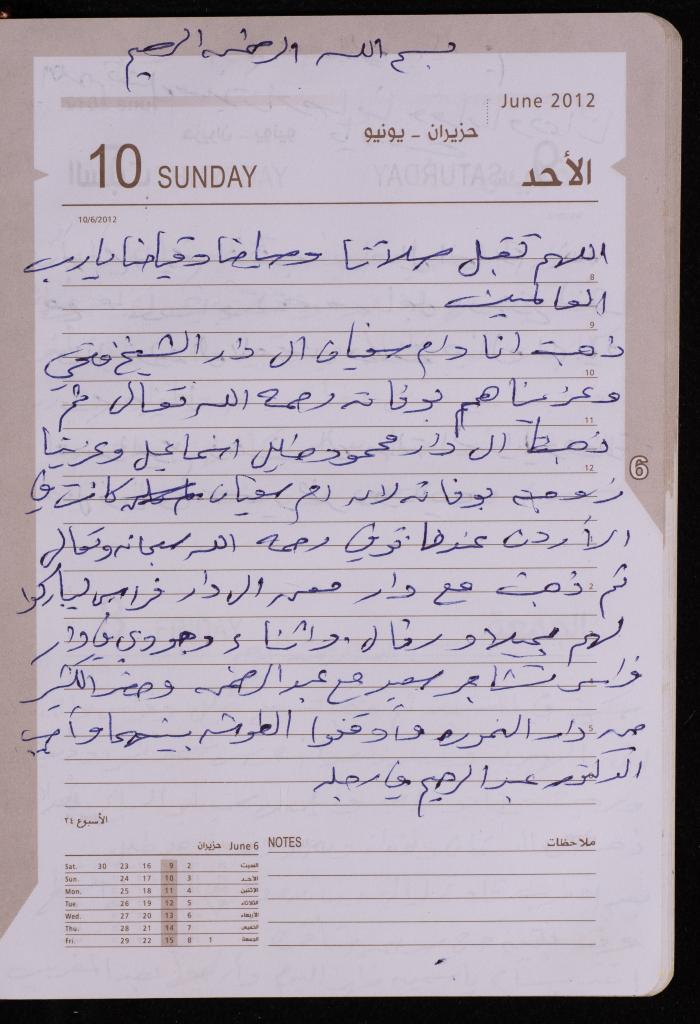 بسم الله الرحمن الرحيم
June 2012
حزيران - يونيو
10 SUNDAY
الأحد
10/6/2012
اللهم تقبل صلاتنا وصيامنا وقيامنا يارب
8
العالمين
9
ذهبت انا وام سفيان الى دار الشيخ فتحي
10
وعزيناهم بوفاته رحمه الله تعالى ثم
11
ذهبنا الى دار محمود خليل اسماعيل وعزينا
12
زوجته بوفاته لانه ام سفيان كانت في
الأردن عندما توفى رحمه الله سبحانه وتعالى
2
ثم ذهبت مع دار معن الى دار فراس ليباركوا
لهم بميلاد رفال. واثناء وجودي في دار
فراس تشاجر سعيد مع عبد الرحمن وحضر الكثير
5
من دار النمورة وأوقفوا الطوشه بينهما وأصيب
الدكتور عبد الرحيم في رجله
الأسبوع ٢٤
6
حزيران June 6
Sat. 30 23 16 9 2 السبت
Sun. 24 17 10 3 الأحد
Mon. 25 18 11 4 الاثنين
Tue. 26 19 12 5 الثلاثاء
Wed. 27 20 13 6 الأربعاء
Thu. 28 21 14 7 الخميس
Fri. 29 22 15 8 1 الجمعة
NOTES ملاحظات